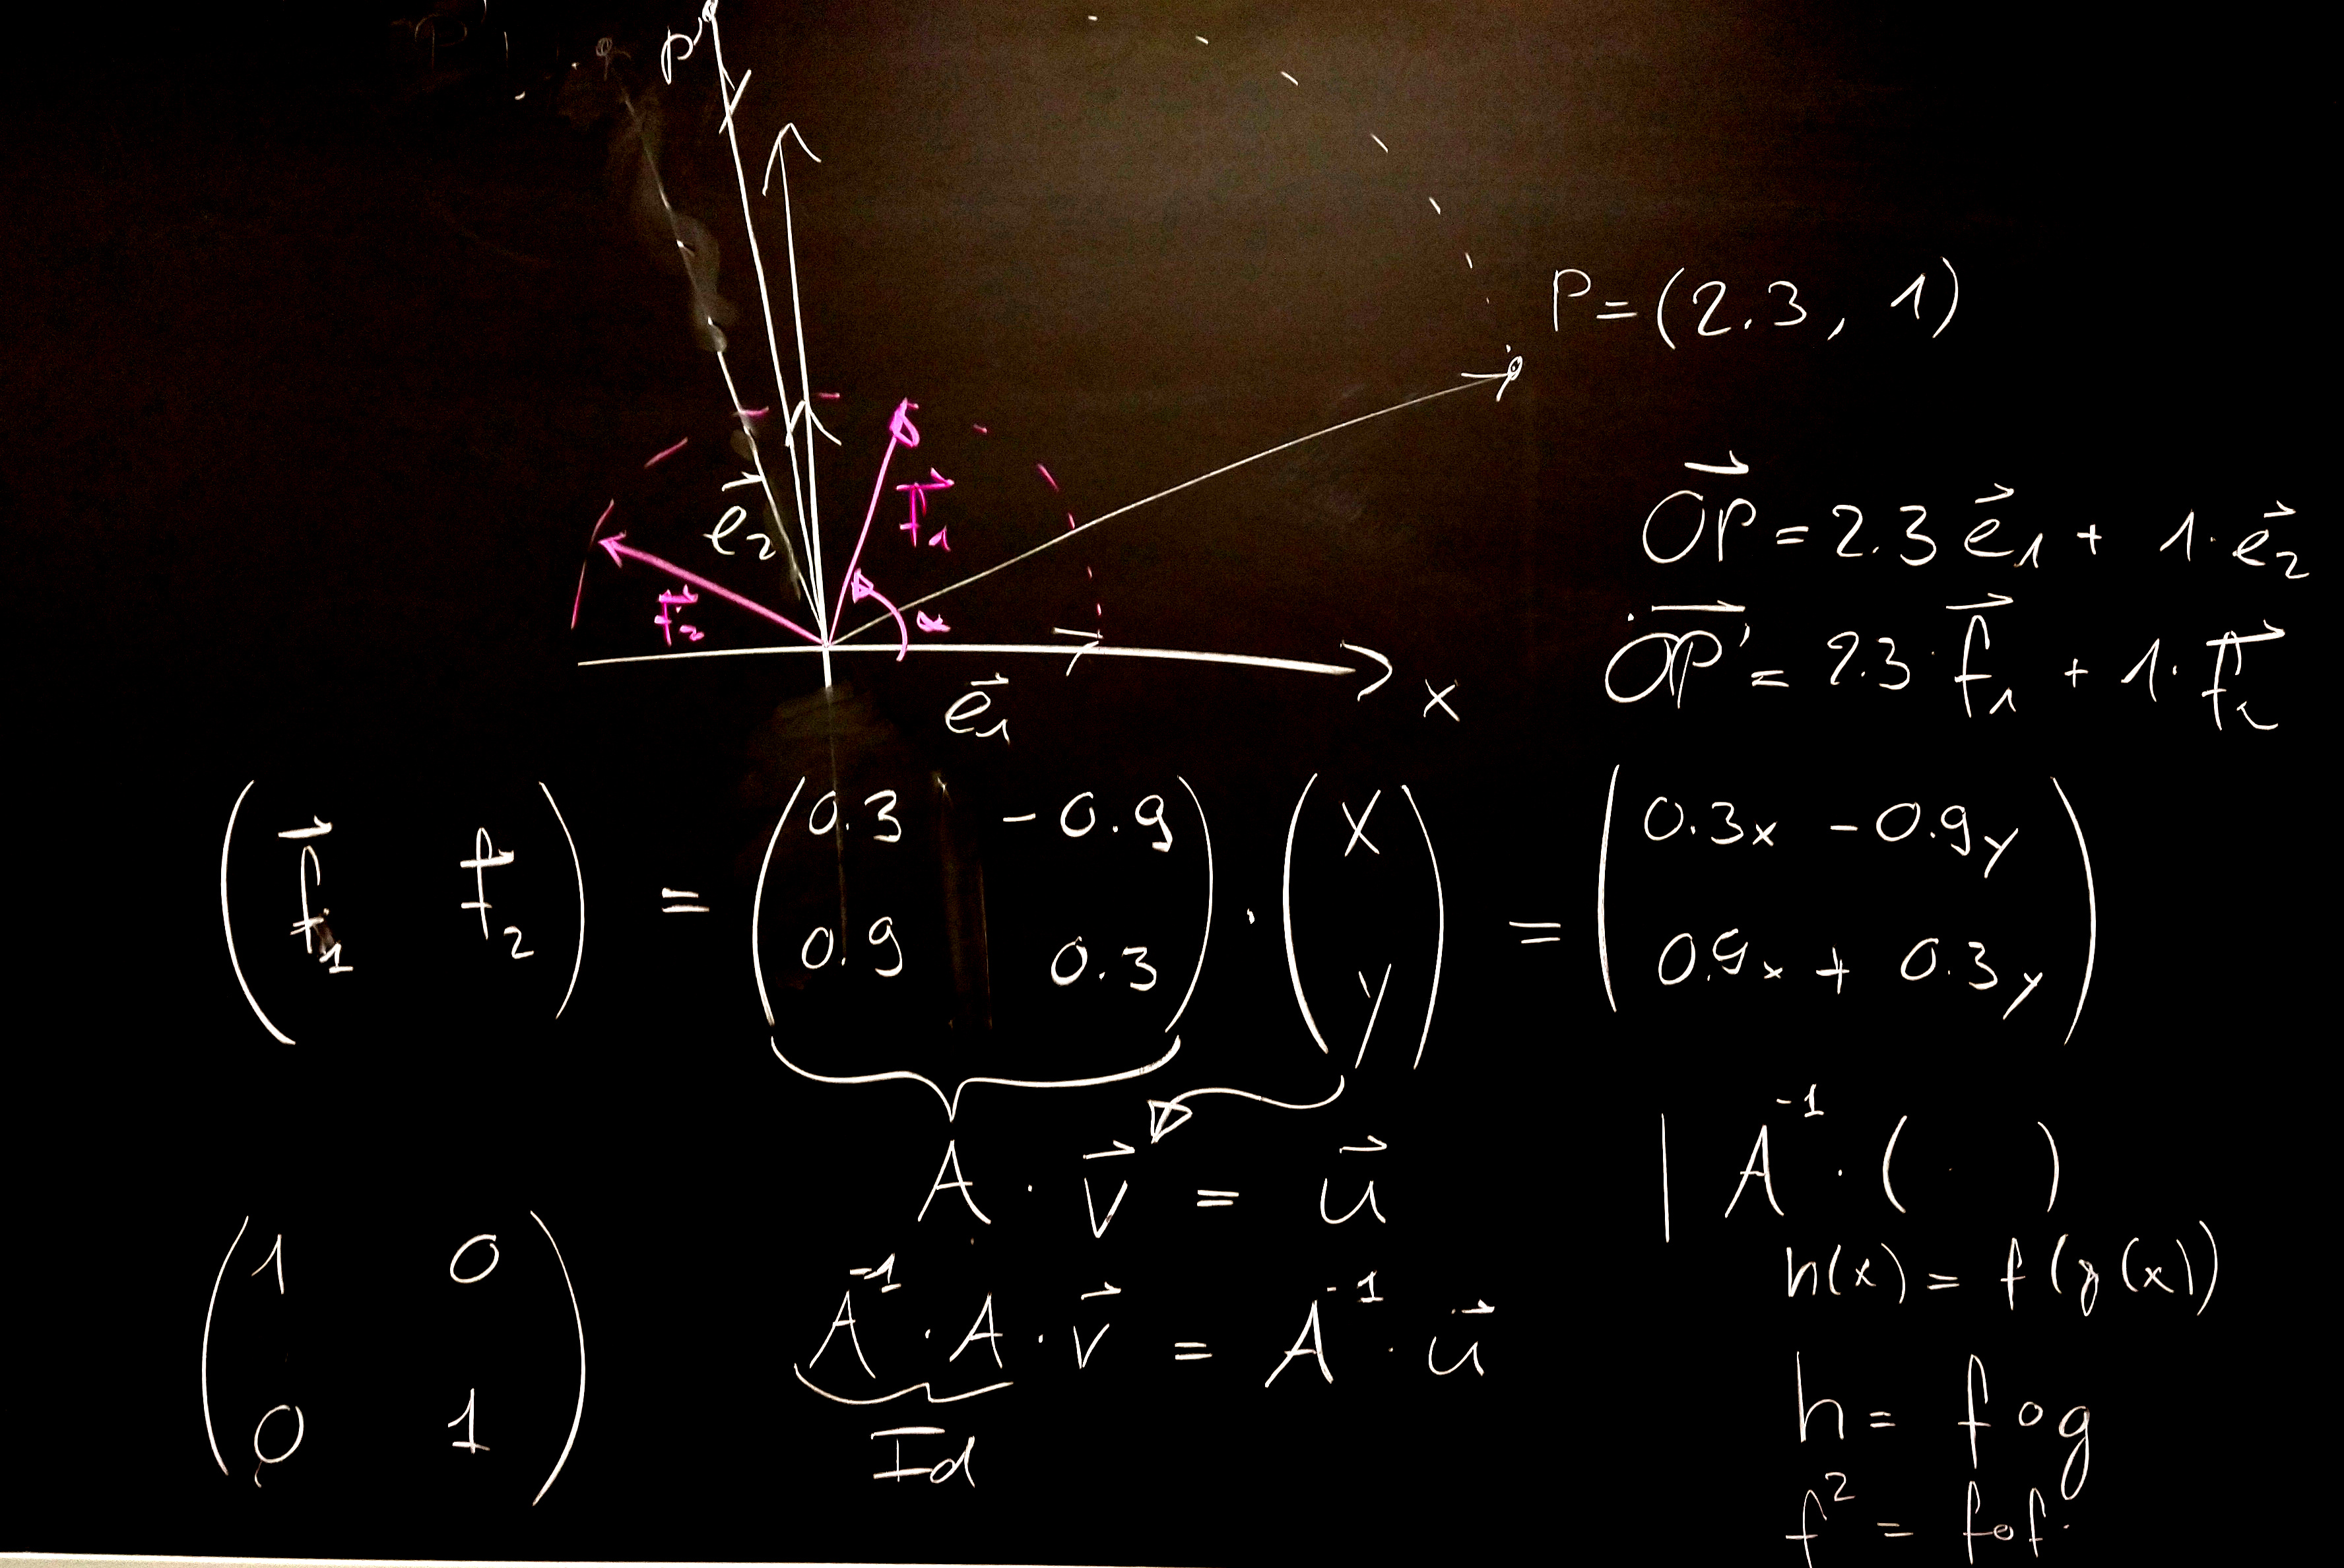 P'
P = (2.3, 1)
e⃗₂
f⃗₁
f⃗₂
α
e⃗₁
x
O⃗P⃗ = 2.3 e⃗₁ + 1 · e⃗₂
O⃗P⃗' = 2.3 · f⃗₁ + 1 · f⃗₂
( f⃗₁ f₂ ) = ( 0.3 -0.9 ) · ( x ) = ( 0.3x - 0.9y )
( 0.9 0.3 ) ( y ) ( 0.9x + 0.3y )
A · v⃗ = u⃗ | A⁻¹ · ( )
( 1 0 )
( 0 1 )
A⁻¹ · A · v⃗ = A⁻¹ · u⃗
Id
h(x) = f(g(x))
h = f∘g
f² = f∘f